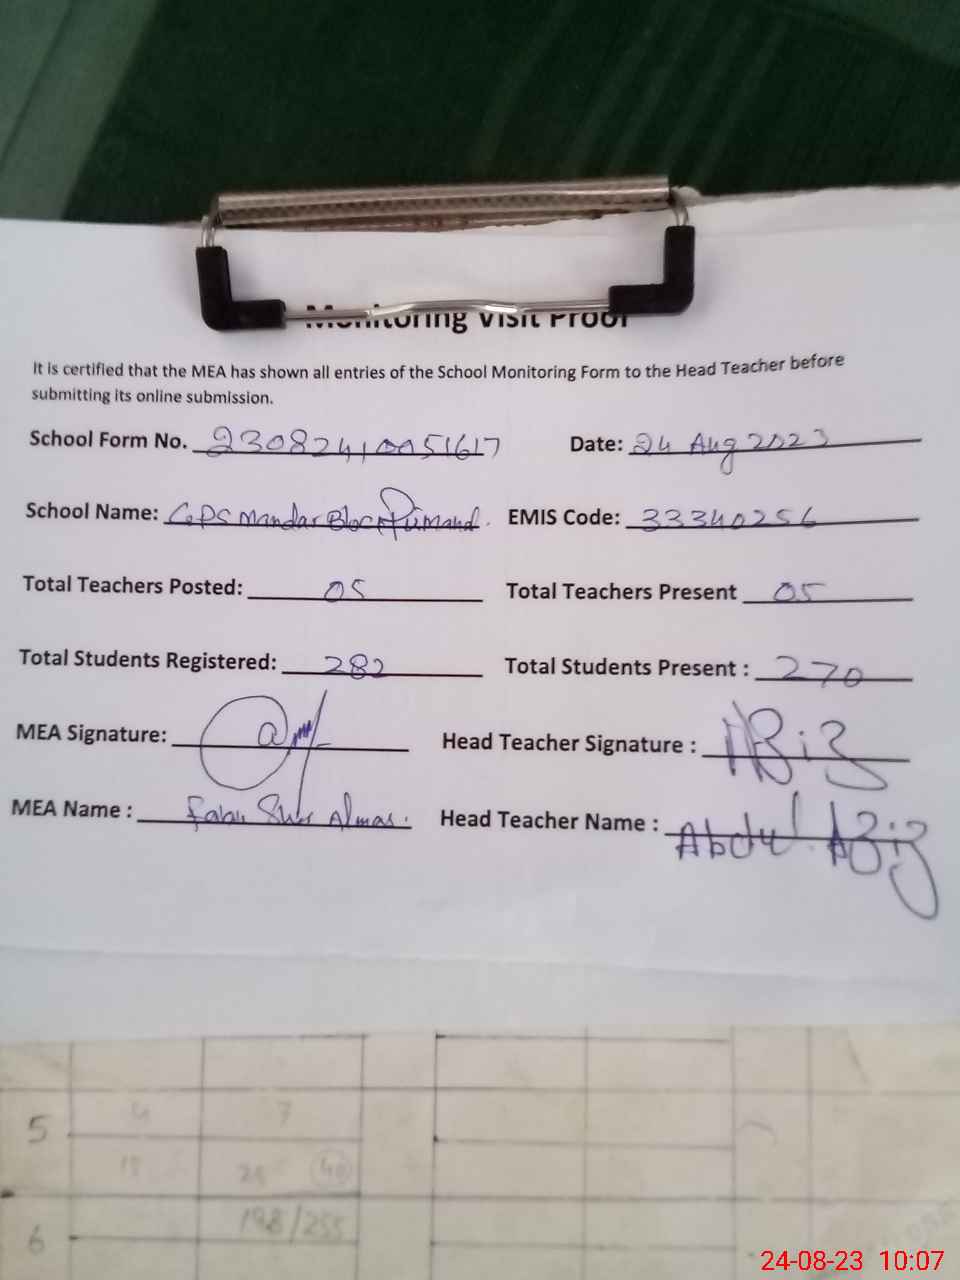 Monitoring Visit Proof
It is certified that the MEA has shown all entries of the School Monitoring Form to the Head Teacher before
submitting its online submission.
School Form No. 23082410051617 Date: 24 Aug 2023
School Name: GPS Mandar Block EMIS Code: 33340256
Total Teachers Posted: 05 Total Teachers Present 05
Total Students Registered: 282 Total Students Present : 270
MEA Signature: Head Teacher Signature : ABiz
MEA Name : Almas. Head Teacher Name : Abdul Aziz
5 4 7
15 40
6 198/255
24-08-23 10:07